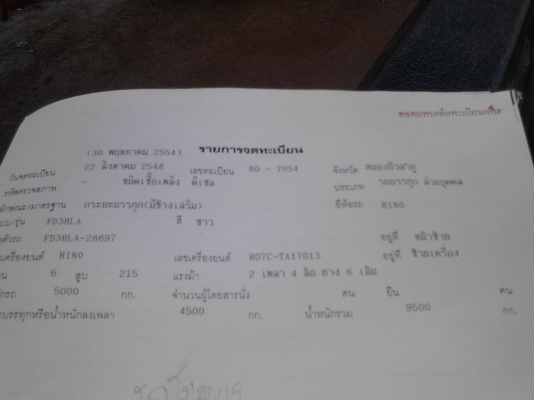 (30 พฤษภาคม 2554) รายการจดทะเบียน
วันจดทะเบียน 22 สิงหาคม 2548 เลขทะเบียน 80 - 7054 จังหวัด หนองบัวลำภู
รหัสตรวจสภาพ - ชนิดเชื้อเพลิง ดีเซล ประเภท รถบรรทุก ส่วนบุคคล
ลักษณะ/มาตรฐาน กระบะบรรทุก(มีข้างเสริม) ยี่ห้อรถ HINO
แบบ/รุ่น FD3HLA สี ขาว
FD3HLA-28697 อยู่ที่ หน้าซ้าย
เครื่องยนต์ HINO เลขเครื่องยนต์ H07C-TA17013 อยู่ที่ ซ้ายเครื่อง
6 สูบ 215 แรงม้า 2 เพลา 4 ล้อ ยาง 6 เส้น
5000 กก. จำนวนผู้โดยสารนั่ง คน ยืน คน
น้ำหนักลงเพลา 4500 กก. น้ำหนักรวม 9500 กก.